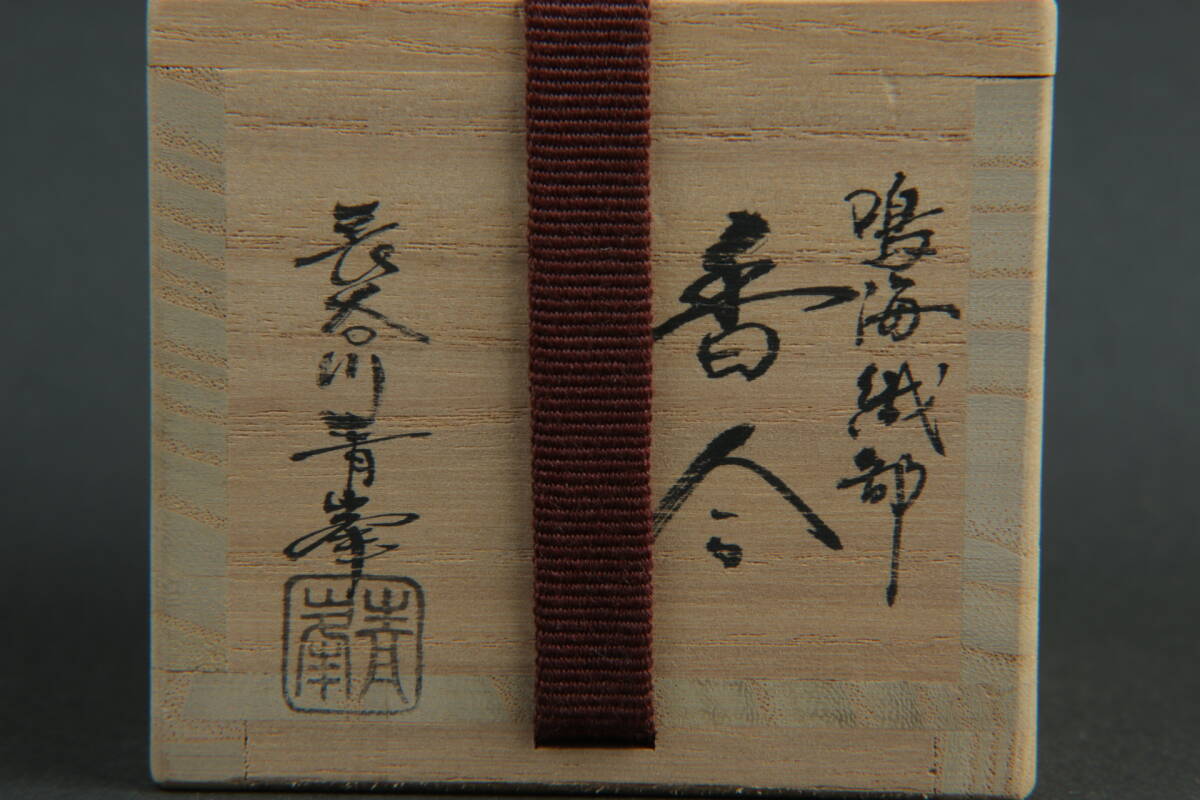 鳴海織部
香合
長谷川青峯
青峯